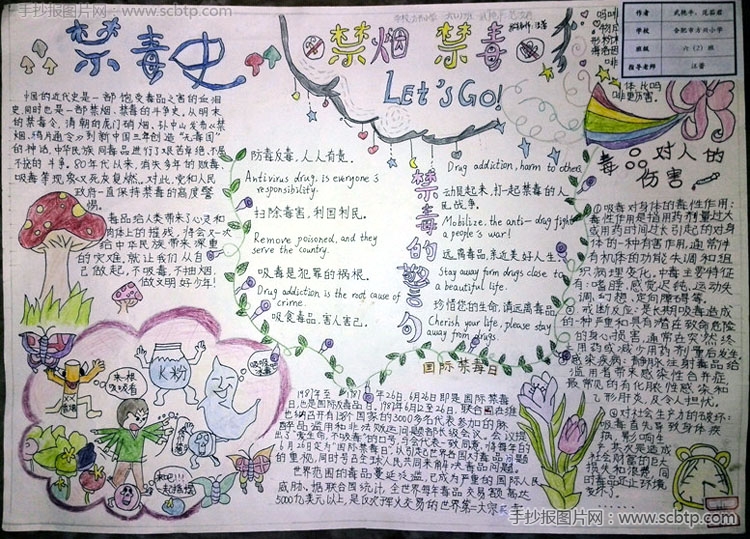 手抄报图片网:www.scbtp.com
禁毒史
禁烟 禁毒
LET'S GO!
作者
学校
合肥市方兴小学
班级
六(2)班
指导老师
汪蕾
中国的近代史是一部饱受毒品之害的血泪
史,同时也是一部禁烟、禁毒的斗争史,从明末
的神话,中华民族同毒品进行了艰苦卓绝、不屈
不挠的斗争。80年代以来,消失多年的贩毒、
吸毒等现象又死灰复燃。对此,党和人民
政府一直保持禁毒的高度警
惕。
毒品给人类带来了心灵和
肉体上的摧残,
给中华民族带来深重
的灾难,就让我们从自
己做起,不吸毒,不抽烟,
做文明好少年!
防毒反毒,人人有责。
Antivirus drug, is everyone's
responsibility.
扫除毒害,利国利民。
Remove poisoned, and they
serve the country.
吸毒是犯罪的祸根。
Drug addiction is the root cause of
crime.
吸食毒品,害人害己。
禁毒的警句
Drug addiction, harm to others
动员起来,打一起禁毒的人
民战争。
Mobilize, the anti-drug fight
a people's war!
远离毒品,亲近美好人生。
Stay away firm drugs close to
a beautiful life.
珍惜您的生命,请远离毒品
Cherish your life, please stay
away from drugs.
毒品对人的
伤害
①吸毒对身体的毒性作用:
毒性作用是指用药剂量过大
或用药时间过长引起的对身
体的一种有害作用,通常伴
有机体的功能失调和组
织病理变化。中毒主要特征
有:嗜睡、感觉迟钝、运动失
调、幻想、定向障碍等。
②戒断反应:是长期吸毒造成
的一种严重和具有潜在致命危险
的身心损害,通常在突然终
止用药或减少用药剂量后发生。
感染疾病:静脉注射毒品给
滥用者带来感染性合并症,
最常见的有化脓性感染和
乙形肝炎,及令人担忧。
③对社会生产力的破坏:
吸毒首先导致身体疾
病,影响生
产,其次是造成
社会财富的巨大
损失和浪费,同
时毒品还让环境
变坏了。
国际禁毒日
1987年
6月26日即是国际禁毒
日,也是国际反毒品日。1987年6月12至26日,联合国在维
也纳召开有138个国家的3000多名代表参加的麻
醉品滥用和非法贩运问题部长级会议。会议提
出了“爱生命,不吸毒”的口号。
6月26日定为“国际禁毒日”,以引起世界各国对毒品问题
的重视,同时号召全球人民共同来解决毒品问题。
世界范围的毒品蔓延泛滥,已成为严重的国际人民
威胁。据联合国统计,全世界每年毒品交易额高达
5000亿美元以上,是仅次于军火交易的世界第二大宗买卖。
K粉
来呀!!!
一起嗨嗨
手抄报图片网:www.scbtp.com